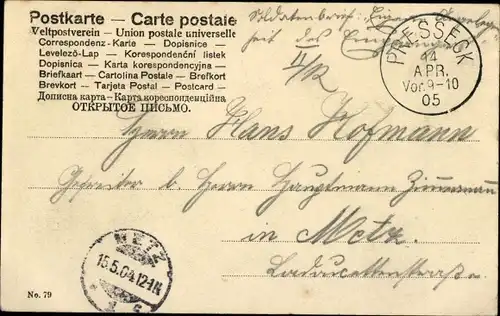 Postkarte — Carte postale
Weltpostverein – Union postale universelle
Correspondenz-Karte – Dopisnice –
Levelező-Lap – Korespondenční lístek
Dopisnica – Karta korespondencyjna –
Briefkaart – Cartolina Postale – Brefkort
Brevkort – Tarjeta Postal – Postcard –
Дописна карта – Карта кореспонденційна
ОТКРЫТОЕ ПИСЬМО.
Soldatenbrief. Eigene Angelegen-
heit des Empfängers
PRESSECK
14
APR.
Vor. 9–10
05
Herrn Hans Hofmann
Gefreiter b. Herrn Hauptmann
in Metz.
METZ
No. 79